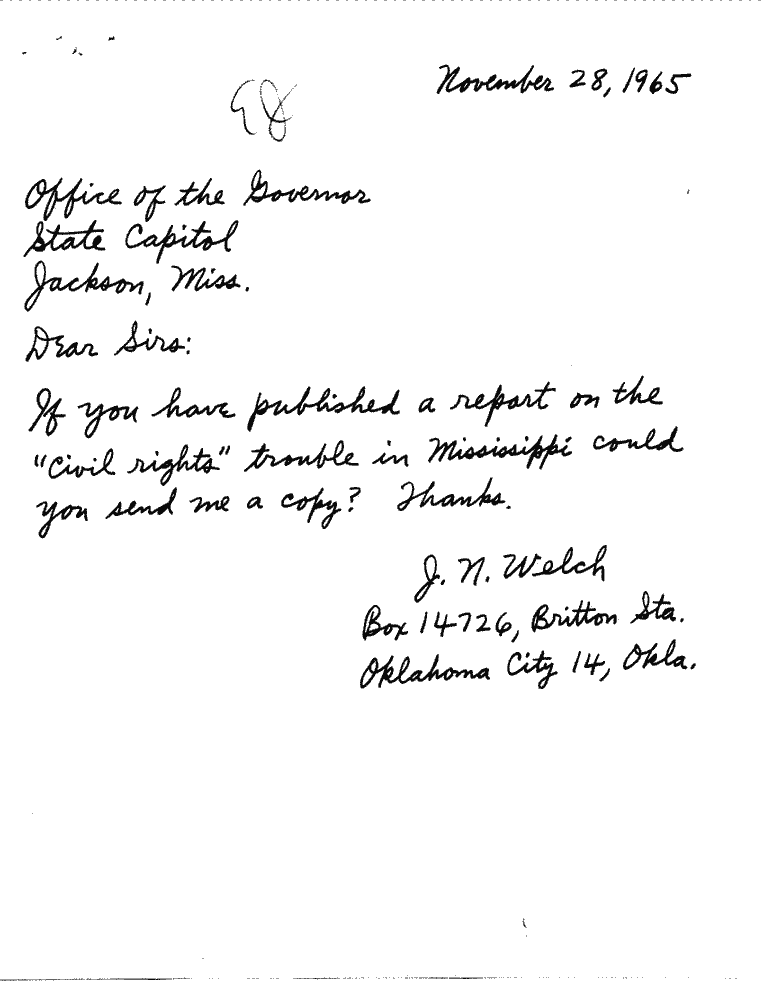 November 28, 1965
Office of the Governor
State Capitol
Jackson, Miss.
Dear Sirs:
If you have published a report on the
"civil rights" trouble in Mississippi could
you send me a copy? Thanks.
J. N. Welch
Box 14726, Britton Sta.
Oklahoma City 14, Okla.